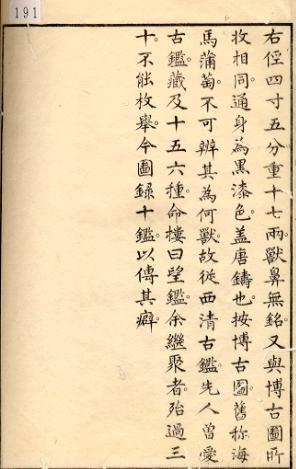 191
右徑四寸五分重十七兩獸鼻無銘又與博古圖所
收相同通身為黑漆色蓋唐鑄也按博古圖舊称海
馬蒲萄不可辨其為何獸故從西清古鑑先人曾愛
古鑑藏及十五六種命樓曰望鑑余繼聚者殆過三
十不能枚舉今圖録十鑑以傳其癖